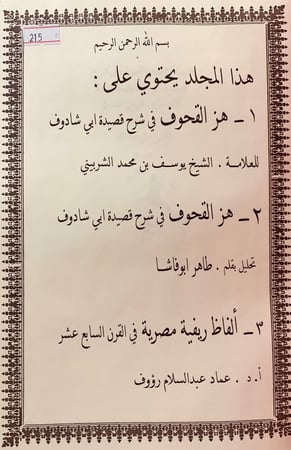 215
بسم الله الرحمن الرحيم
هذا المجلد يحتوي على :
١ ـ هز القحوف في شرح قصيدة ابي شادوف
للعلامة . الشيخ يوسف بن محمد الشربيني
٢ ـ هز القحوف في شرح قصيدة ابي شادوف
تحليل بقلم . طاهر ابوفاشا
٣ ـ ألفاظ ريفية مصرية في القرن السابع عشر
أ . د . عماد عبدالسلام رؤوف